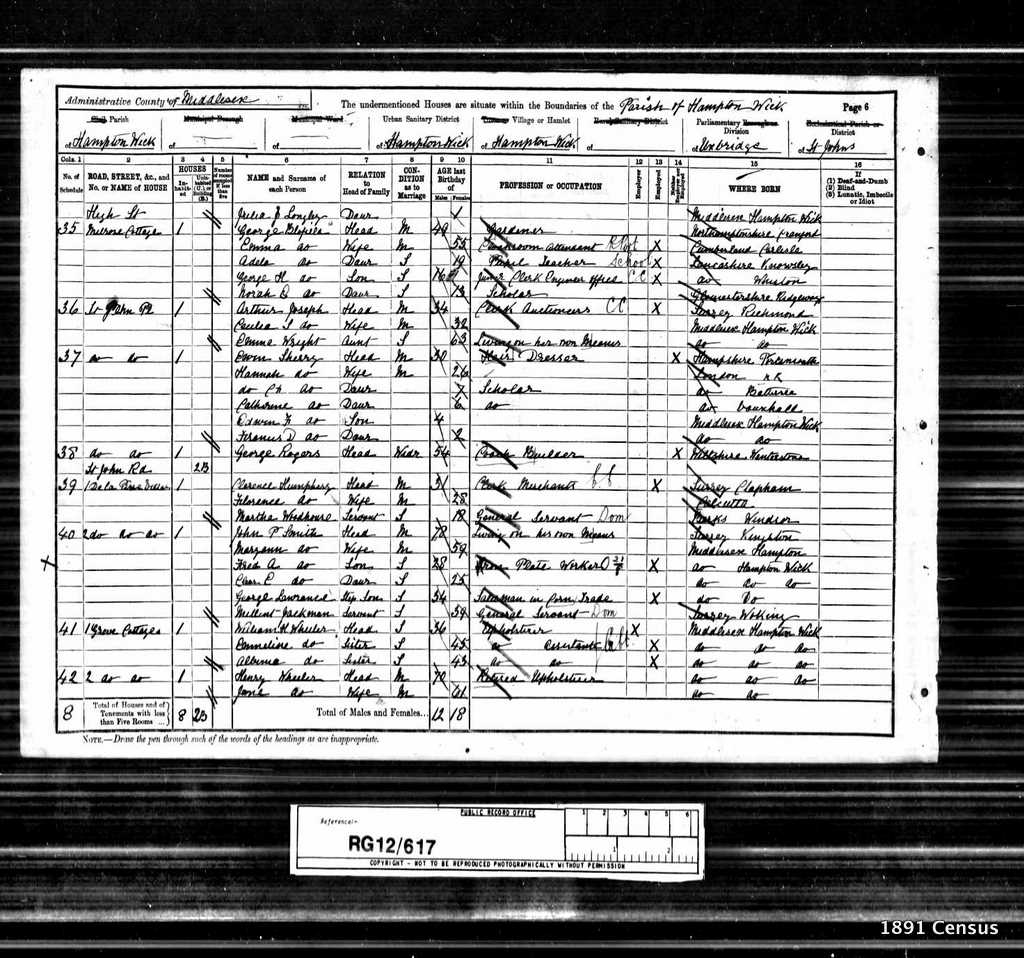 Administrative County of Middlesex
The undermentioned Houses are situate within the Boundaries of the Parish of Hampton Wick
Page 6
Civil Parish
of Hampton Wick
Municipal Borough
of
Municipal Ward
of
Urban Sanitary District
of Hampton Wick
Town or Village or Hamlet
of Hampton Wick
Rural Sanitary District
of
Parliamentary Borough or Division
of Uxbridge
Ecclesiastical Parish or District
of St Johns
Cols. 1 2 3 4 5 6 7 8 9 10 11 12 13 14 15 16
No. of Schedule
ROAD, STREET, &c., and No. or NAME of HOUSE
HOUSES
Inhabited
Uninhabited (U.) or Building (B.)
Number of rooms occupied if less than five
NAME and Surname of each Person
RELATION to Head of Family
CONDITION as to Marriage
AGE last Birthday of
Males Females
PROFESSION or OCCUPATION
Employer
Employed
Neither Employed
WHERE BORN
If
(1) Deaf-and-Dumb
(2) Blind
(3) Lunatic, Imbecile or Idiot
High St Julia E Longley Daur 1 Middlesex Hampton Wick
35 Melrose Cottage 1 George Head M 49 Gardener Northamptonshire Cranford
Emma do Wife M 55 attendant X Cumberland Carlisle
Adela do Daur S 19 Pupil Teacher School X Lancashire Knowsley
George H do Son S 16 Junr Clerk Engineer Office CC X do Whiston
Norah do Daur S 13 Scholar Gloucestershire
36 St John Rd 1 Arthur Joseph Head M 34 Clerk Auctioneers CC Surrey Richmond
Cecilia S do Wife M 32 Middlesex Hampton Wick
Emma Wright Aunt S 63 Living on her own Means do do
37 do do 1 Edwin Head M 30 Hair Dresser X Hampshire Portsmouth
Hannah do Wife M 26 London
do do Daur 7 Scholar do Battersea
Catherine do Daur 6 do do Vauxhall
Edwin F do Son 4 Middlesex Hampton Wick
Frances D do Daur 2 do do
38 do do 1 George Rogers Head Widr 54 Coach Builder X Wiltshire
St John Rd 2B
39 1 Villas 1 Clarence Humphery Head M 31 Clerk Merchants X Surrey Clapham
Florence do Wife M 28 Calcutta
Martha Woodhouse Servant S 18 General Servant Dom Berks Windsor
40 2 do do do 1 John P Smith Head M 78 Living on his own Means Surrey Kingston
Maryann do Wife M 59 Middlesex Hampton
X Fred A. do Son S 28 Plate Worker X do Hampton Wick
E do Daur S 25 do do do
George Lawrance Step Son S 54 Salesman in Corn Trade X do do
Millicent Jackman Servant S 59 General Servant Dom Surrey Woking
41 1 Grove Cottages 1 William H Wheeler Head S 36 Upholsterer X Middlesex Hampton Wick
Emmeline do Sister S 45 do Assistant X do do do
Albenia do Sister S 43 do do X do do do
42 2 do do 1 Henry Wheeler Head M 70 Retired Upholsterer do do do
Jane do Wife M 61 do do
8 Total of Houses and of Tenements with less than Five Rooms ... 8 2B
Total of Males and Females... 12 18
NOTE.—Draw the pen through such of the words of the headings as are inappropriate.
PUBLIC RECORD OFFICE
Reference:-
RG12/617
1 2 3 4 5 6
1 2
COPYRIGHT - NOT TO BE REPRODUCED PHOTOGRAPHICALLY WITHOUT PERMISSION
1891 Census